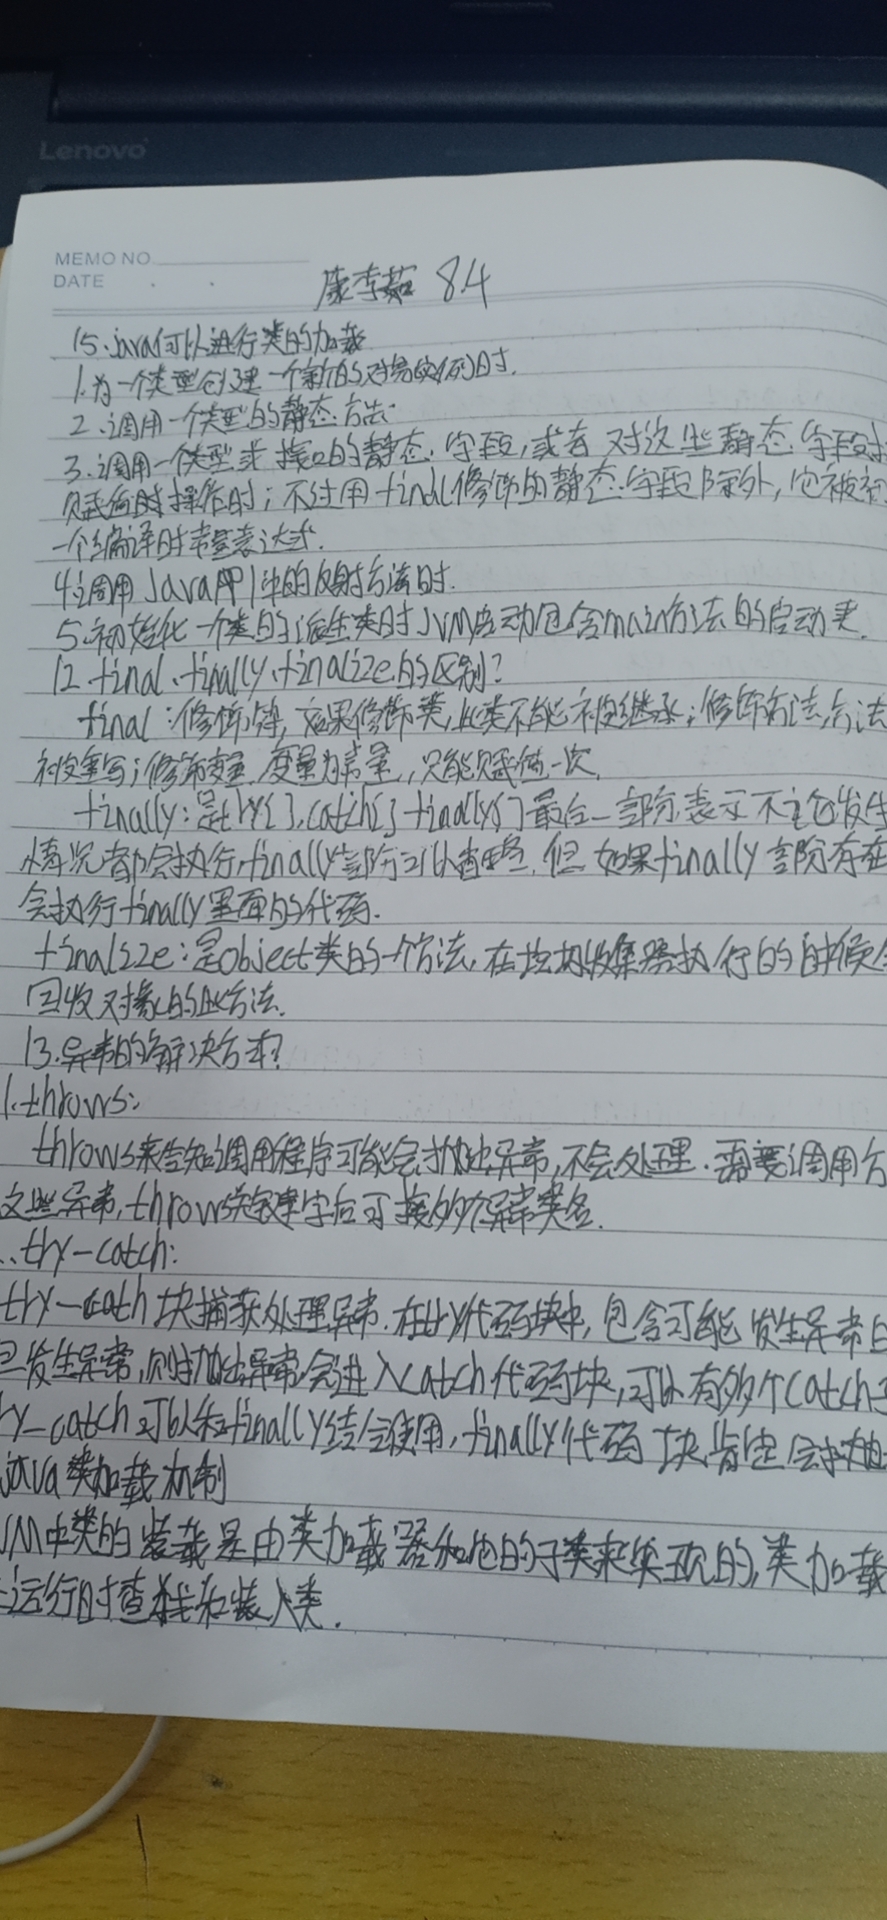 Lenovo
MEMO NO.
DATE
康李茹 8.4
15.java何以进行类的加载
1.为一个类型创建一个新的对象实例时.
2.调用一个类型的静态方法
3.调用一个类型或接口的静态字段,或者对这些静态字段
赋值时操作时;不过用final修饰的静态字段除外,它被初
一个编译时常量表达式.
4.调用JavaAPI中的反射方法时.
5.初始化一个类的派生类时JVM启动包含main方法的启动类.
12.final、finally、finalize的区别?
final:修饰符,如果修饰类,此类不能被继承;修饰方法,方法
被重写;修饰变量,变量为常量,只能赋值一次.
finally:是try{}.catch{}finally{}最后一部分表示不论发生
情况都会执行,finally部分可以省略,但如果finally部分存在
会执行finally里面的代码.
finalize:是Object类的一个方法,在垃圾收集器执行的时候会
回收对象的此方法.
13.异常的解决方本?
1.throws:
throws来告知调用程序可能会抛出异常,不会处理.需要调用方
这些异常,throws关键字后可接多个异常类名.
..try-catch:
try-cath块捕获处理异常.在try代码块中,包含可能发生异常
发生异常,则抛出异常会进入catch代码块,可以有多个catch
ry-catch可以和finally结合使用,finally代码块肯定会执
java类加载机制
VM中类的装载是由类加载器和他的子类来实现的,类加载
运行时查找和装入类.